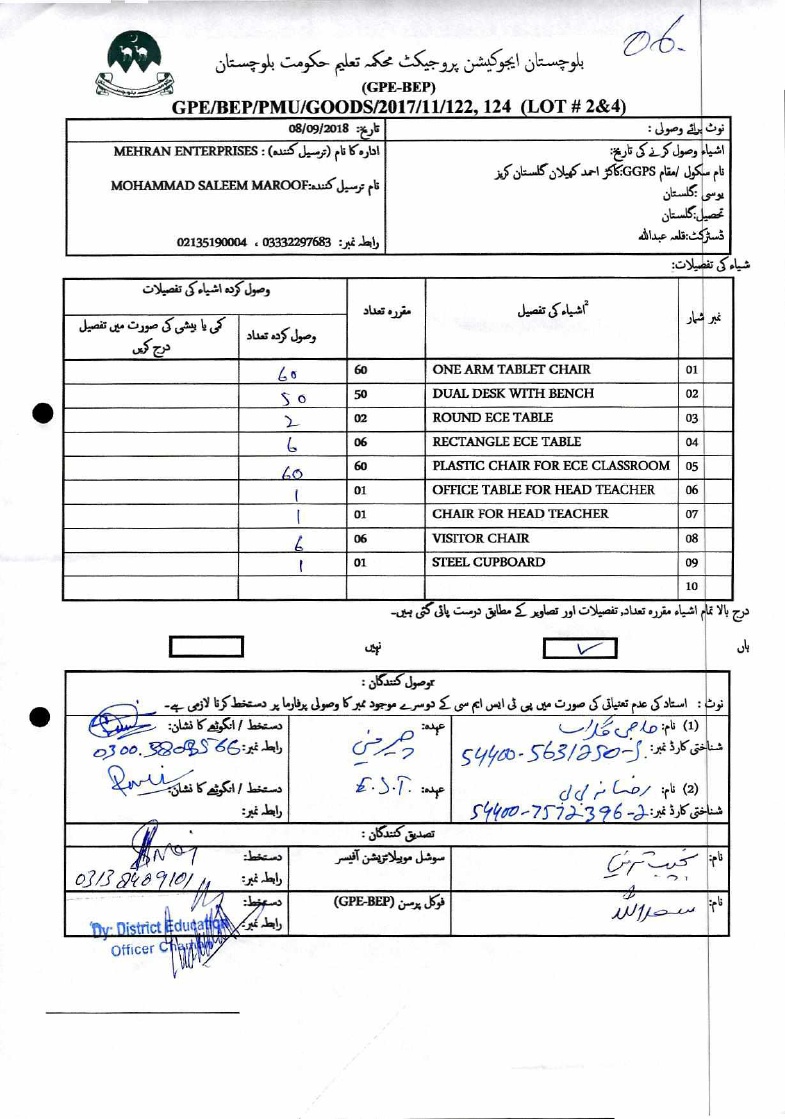 06.
بلوچستان ایجوکیشن پروجیکٹ محکمہ تعلیم حکومت بلوچستان
(GPE-BEP)
GPE/BEP/PMU/GOODS/2017/11/122, 124 (LOT # 2&4)
نوٹ برائے وصولی :
تاریخ: 08/09/2018
اشیاء وصول کرنے کی تاریخ:
ادارہ کا نام (ترسیل کنندہ) : MEHRAN ENTERPRISES
نام سکول /مقام GGPS:کاکڑ احمد کھیلان گلستان کریز
نام ترسیل کنندہ:MOHAMMAD SALEEM MAROOF
یوسی :گلستان
تحصیل:گلستان
ڈسٹرکٹ:قلعہ عبداللہ
رابطہ نمبر: 03332297683 ، 02135190004
شیاء کی تفصیلات:
نمبر شمار
اشیاء کی تفصیل2
مقررہ تعداد
وصول کردہ اشیاء کی تفصیلات
وصول کردہ تعداد
کمی یا بیشی کی صورت میں تفصیل درج کریں
01 ONE ARM TABLET CHAIR 60 60
02 DUAL DESK WITH BENCH 50 50
03 ROUND ECE TABLE 02 2
04 RECTANGLE ECE TABLE 06 6
05 PLASTIC CHAIR FOR ECE CLASSROOM 60 60
06 OFFICE TABLE FOR HEAD TEACHER 01 1
07 CHAIR FOR HEAD TEACHER 01 1
08 VISITOR CHAIR 06 6
09 STEEL CUPBOARD 01 1
10
درج بالا تمام اشیاء مقررہ تعداد, تفصیلات اور تصاویر کے مطابق درست پائی گئی ہیں۔
ہاں ✓ نہیں
توصول کنندگان :
نوٹ : استاد کی عدم تعنیاتی کی صورت میں پی ٹی ایس ایم سی کے دوسرے موجود ممبر کا وصولی پرفارما پر دستخط کرنا لازمی ہے۔
(1) نام: حاجی گلاب
عہدہ: چیرمین
دستخط / انگوٹھے کا نشان:
شناختی کارڈ نمبر: 54400-5631250-
رابطہ نمبر:
(2) نام: رضانہ بی بی
عہدہ: E.S.T.
دستخط / انگوٹھے کا نشان:
شناختی کارڈ نمبر: 54400-7572396-2
رابطہ نمبر:
تصدیق کنندگان :
نام:
سوشل موبیلائزیشن آفیسر
دستخط:
رابطہ نمبر: 03138409101
نام: سعداللہ
فوکل پرسن (GPE-BEP)
دستخط:
رابطہ نمبر:
Dy: District Education
Officer